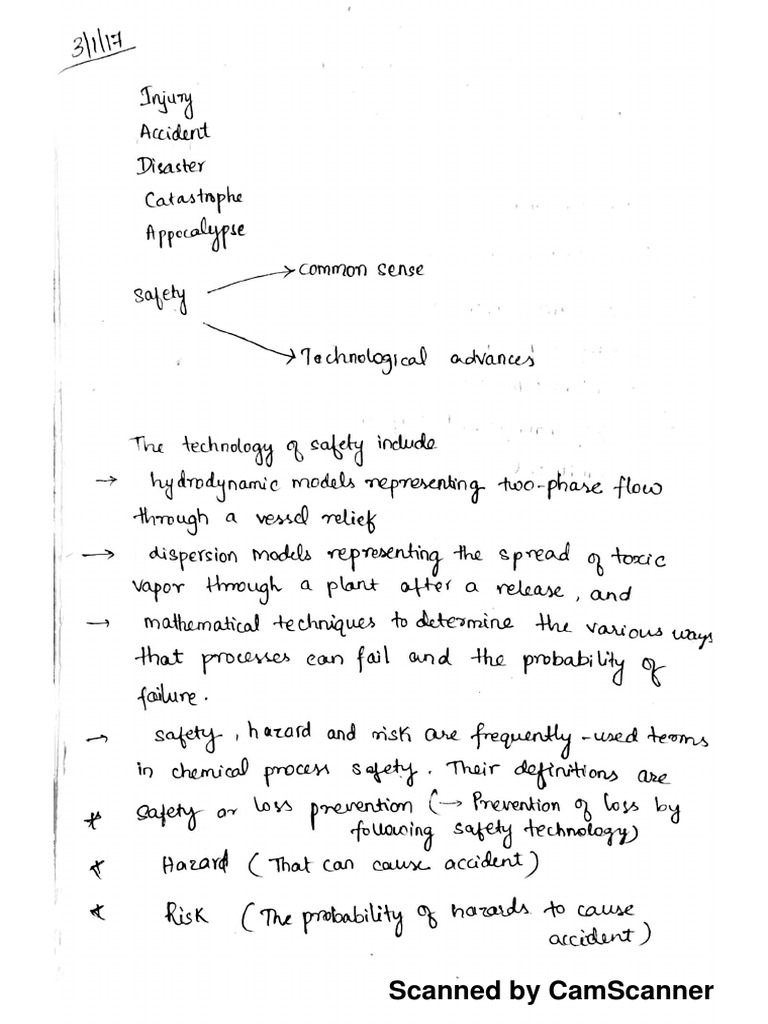 3/1/17
Injury
Accident
Disaster
Catastrophe
Appocalypse
→ common sense
Safety
→ Technological advances
The technology of safety include
→ hydrodynamic models representing two-phase flow
through a vessel relief
→ dispersion models representing the spread of toxic
vapor through a plant after a release, and
→ mathematical techniques to determine the various ways
that processes can fail and the probability of
failure.
→ safety, hazard and risk are frequently-used terms
in chemical process safety. Their definitions are
* Safety or loss prevention (→ Prevention of loss by
following safety technology)
* Hazard (That can cause accident)
* Risk (The probability of hazards to cause
accident)
Scanned by CamScanner